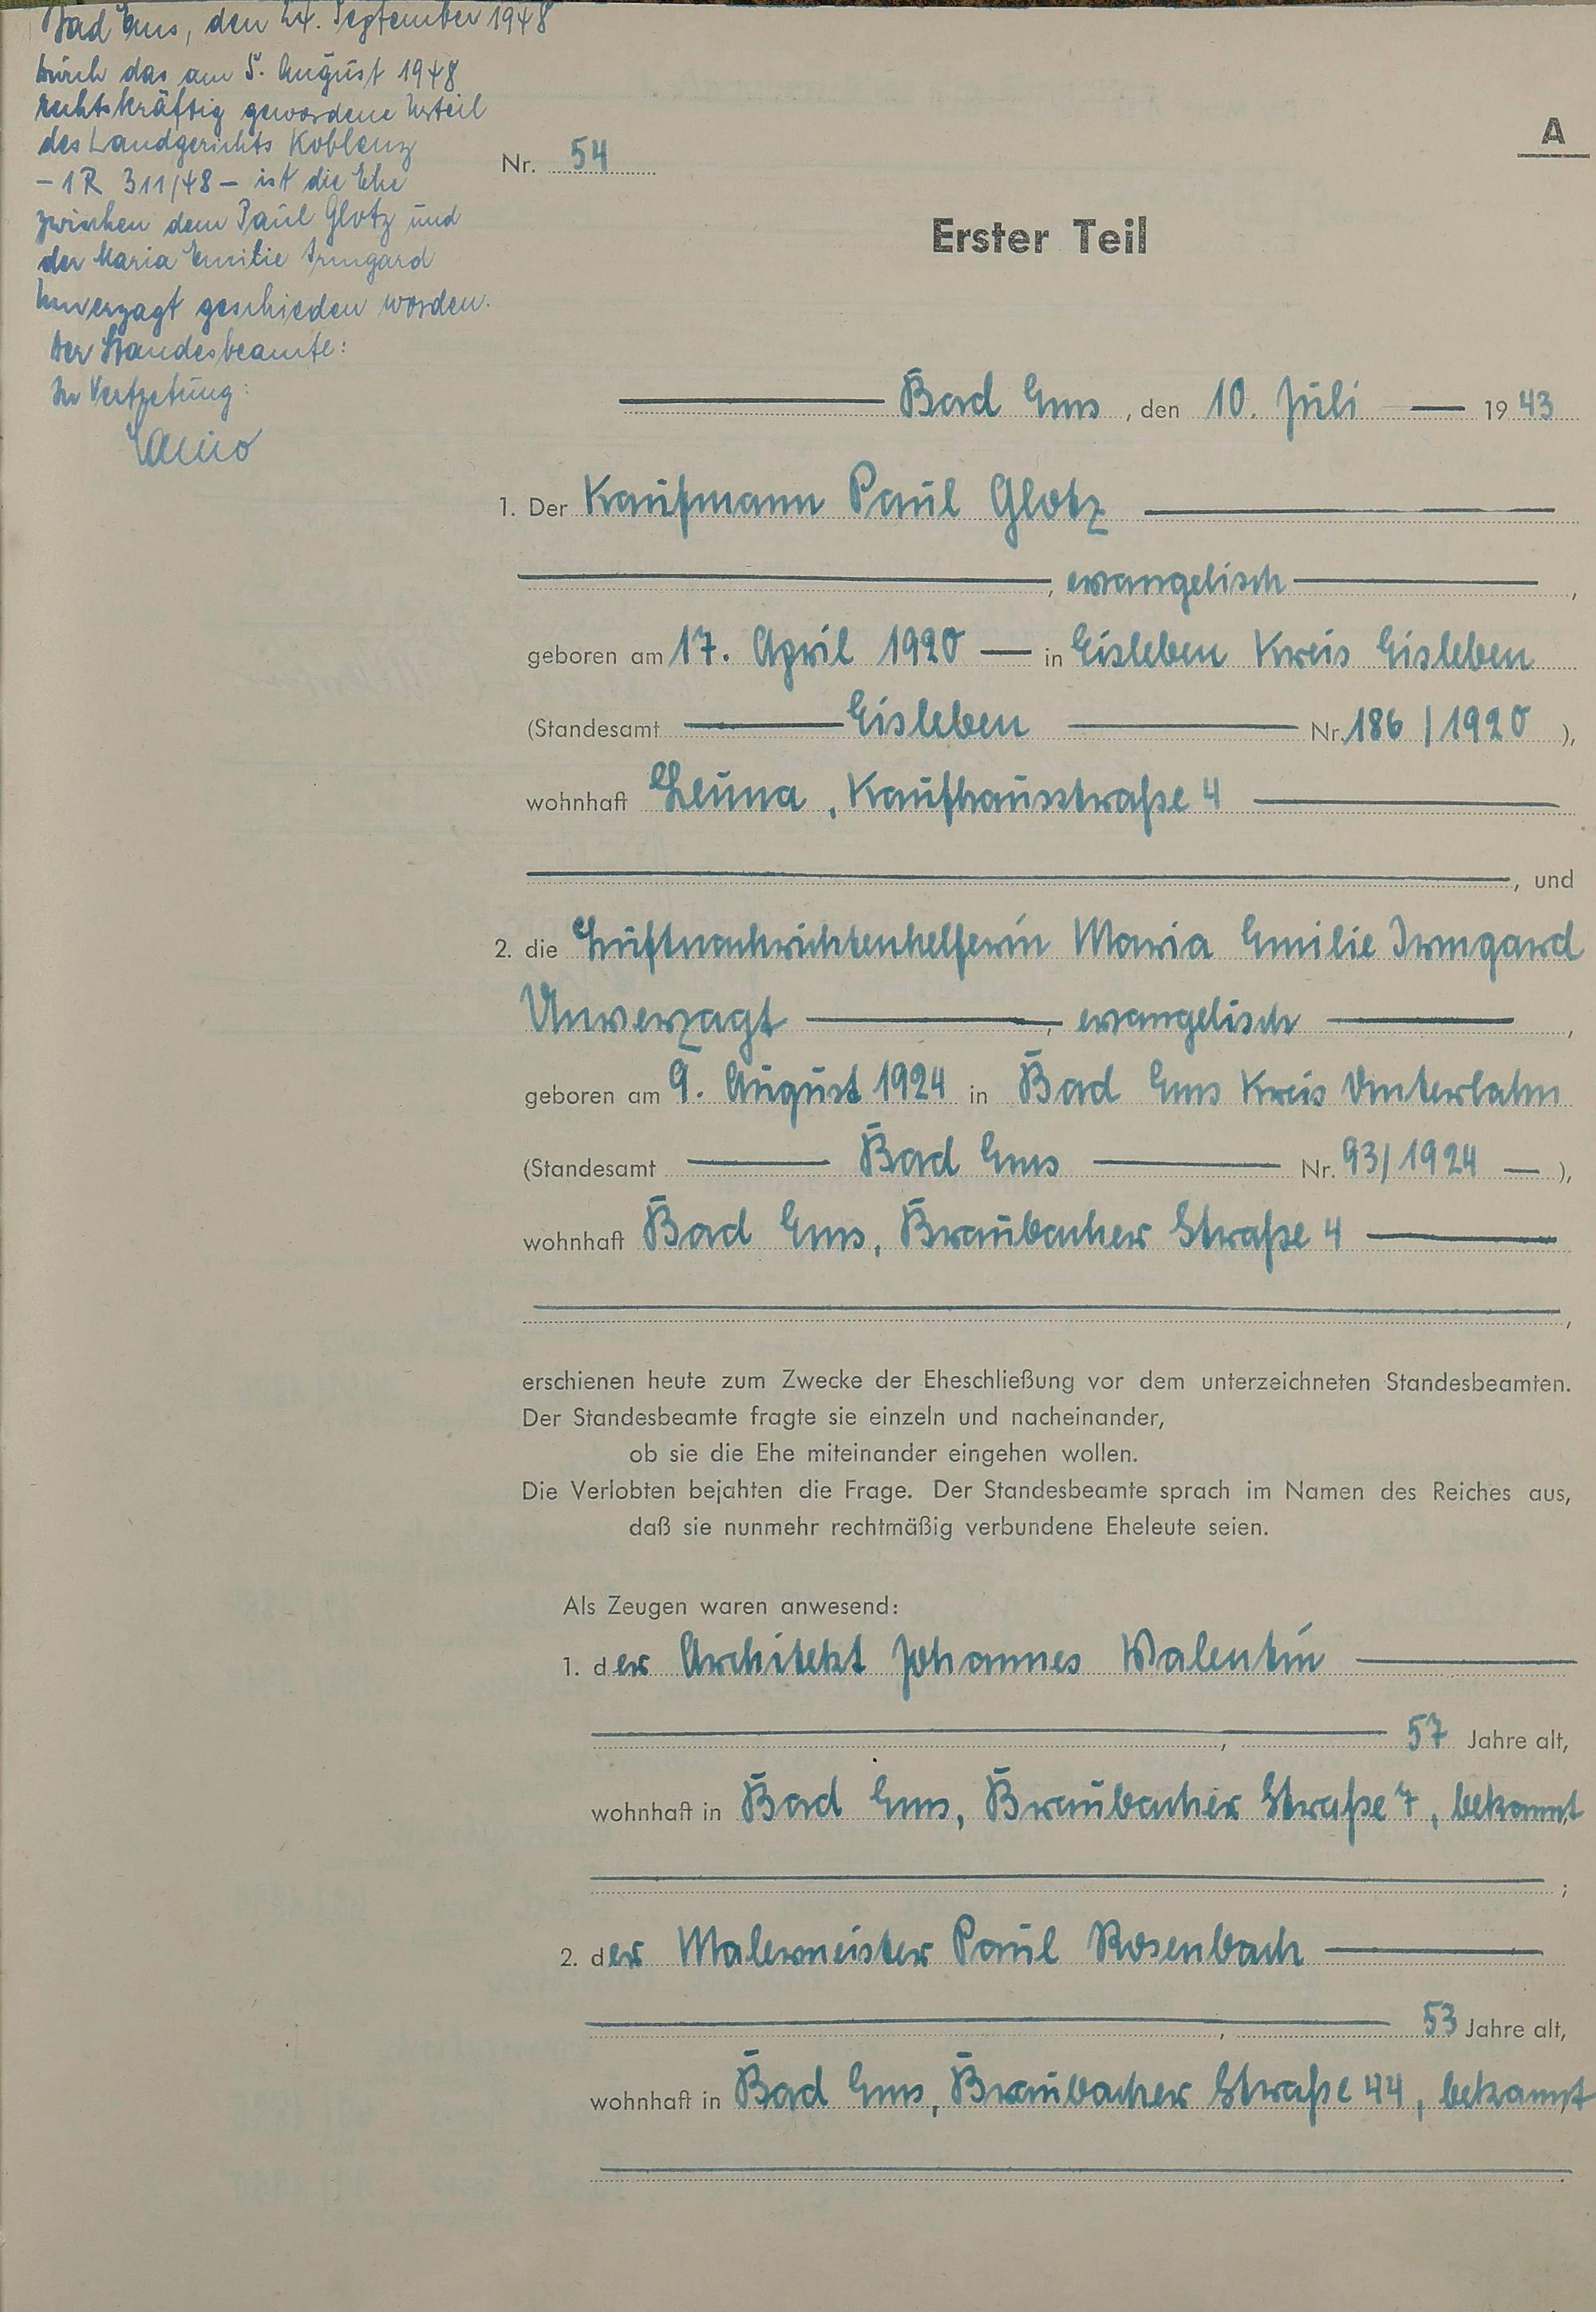 Bad Ems, den 24. September 1948
Durch das am 5. August 1948
rechtskräftig gewordene Urteil
des Landgerichts Koblenz
– 1 R 311/48 – ist die Ehe
zwischen dem Paul Glotz und
der Maria Emilie Irmgard
Unverzagt geschieden worden.
Der Standesbeamte:
In Vertretung:
A
Nr. 54
Erster Teil
Bad Ems, den 10. Juli 1943
1. Der Kaufmann Paul Glotz
, evangelisch ,
geboren am 17. April 1920 in Eisleben Kreis Eisleben
(Standesamt Eisleben Nr. 186/1920 ),
wohnhaft Leuna, Kaufhausstraße 4
, und
2. die Luftnachrichtenhelferin Maria Emilie Irmgard
Unverzagt , evangelisch ,
geboren am 9. August 1924 in Bad Ems Kreis Unterlahn
(Standesamt Bad Ems Nr. 93/1924 ),
wohnhaft Bad Ems, Braubacher Straße 4
,
erschienen heute zum Zwecke der Eheschließung vor dem unterzeichneten Standesbeamten.
Der Standesbeamte fragte sie einzeln und nacheinander,
ob sie die Ehe miteinander eingehen wollen.
Die Verlobten bejahten die Frage. Der Standesbeamte sprach im Namen des Reiches aus,
daß sie nunmehr rechtmäßig verbundene Eheleute seien.
Als Zeugen waren anwesend:
1. der Architekt Johannes Walentin
, 57 Jahre alt,
wohnhaft in Bad Ems, Braubacher Straße 7, bekannt
;
2. der Malermeister Paul Rosenbach
, 53 Jahre alt,
wohnhaft in Bad Ems, Braubacher Straße 44, bekannt
.